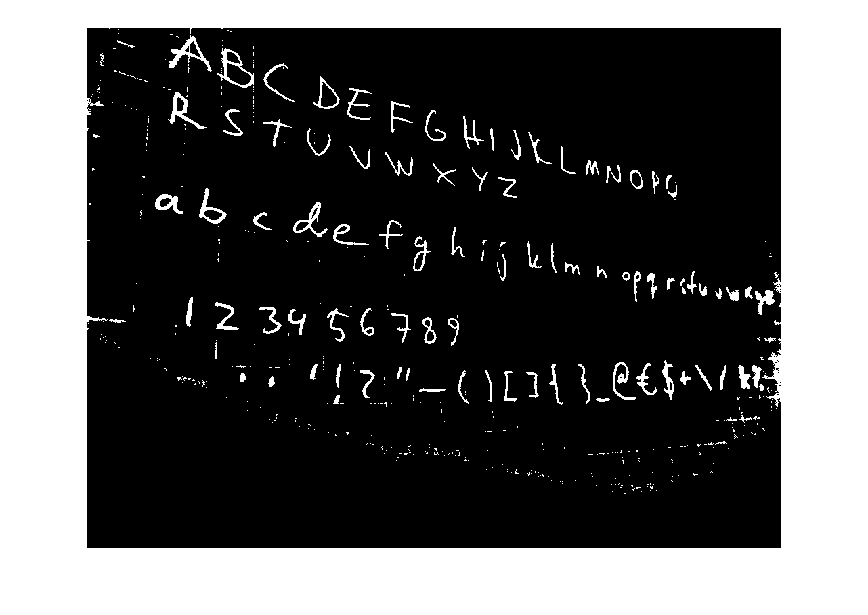 A B C D E F G H I J K L M N O P Q
R S T U V W X Y Z
a b c d e f g h i j k l m n o p q r s t u v w x y z
1 2 3 4 5 6 7 8 9
. . ' ! ? " - ( ) [ ] { } _ @ € $ + \ /